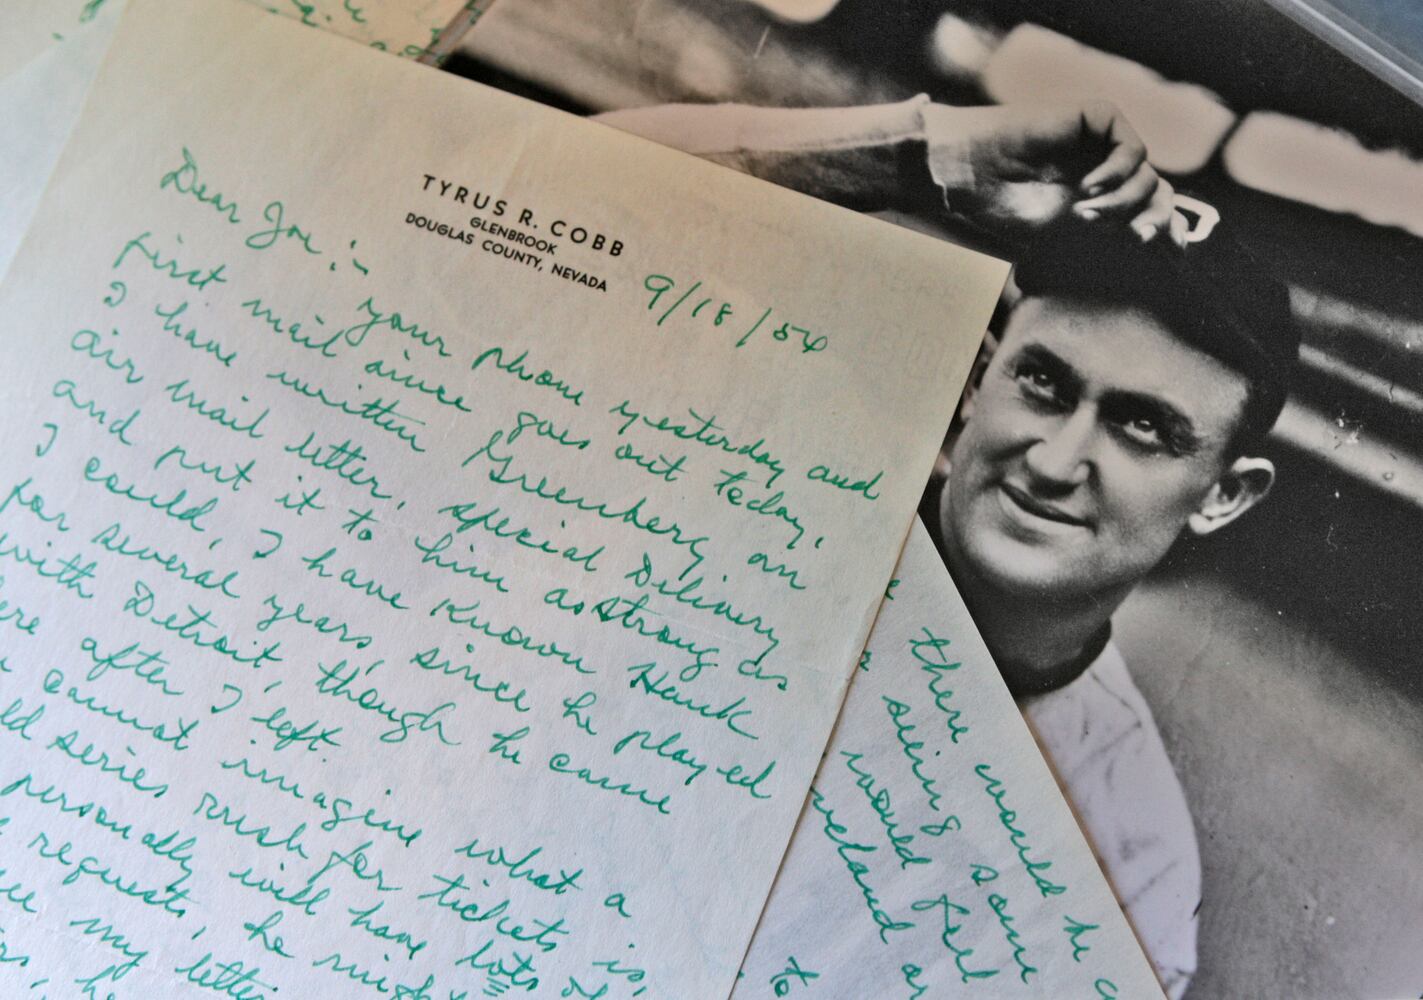 TYRUS R. COBB
GLENBROOK
DOUGLAS COUNTY, NEVADA
9/18/54
Dear Joe:~
your phone yesterday and
first mail since goes out today,
I have written Greenberg an
air mail letter, special Delivery
and put it to him as strong as
I could, I have known Hank
for several years, since he played
with Detroit, though he came
ere after I left
cannot imagine what a
ld series rush for tickets is,
personally will have lots of
requests, he might
my letter
there would be a
seeing some
would feel
veland or
to